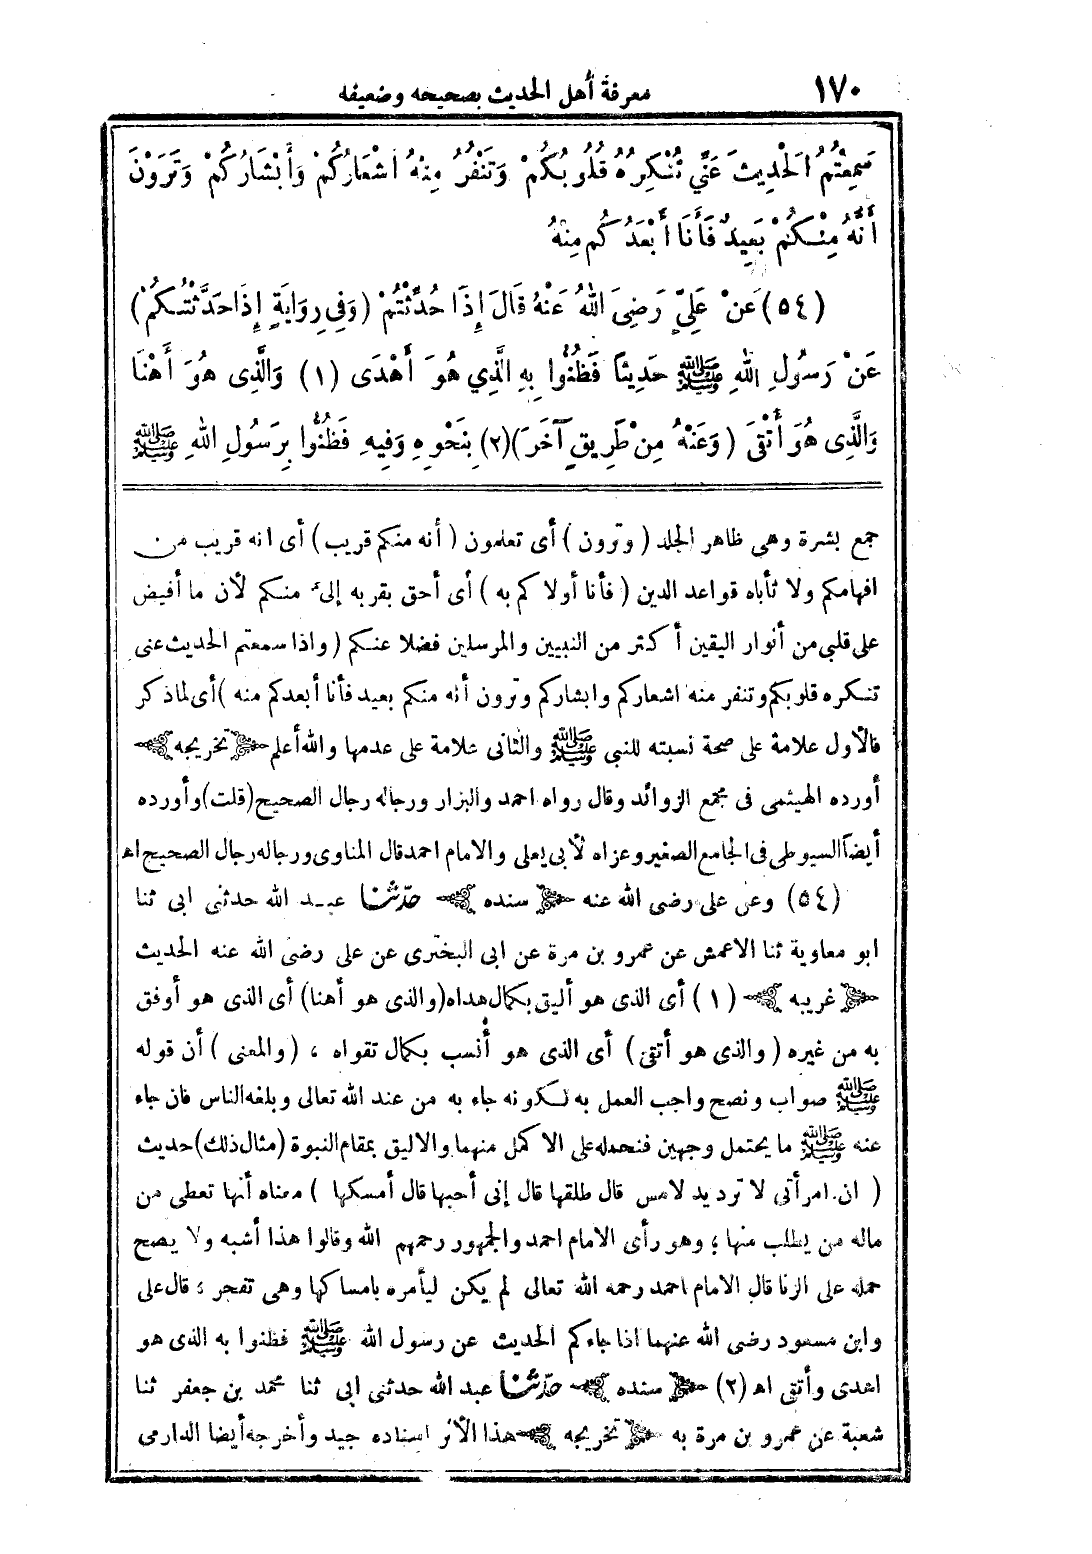 ١٧٠ معرفة أهل الحديث بصحيحه وضعيفه
سَمِعْتُمُ الْحَدِيثَ عَنِّي تُنْكِرُهُ قُلُوبُكُمْ وَتَنْفُرُ مِنْهُ أَشْعَارُكُمْ وَأَبْشَارُكُمْ وَتَرَوْنَ
أَنَّهُ مِنْكُمْ بَعِيدٌ فَأَنَا أَبْعَدُكُم مِنْهُ
(٥٤) عَنْ عَلِيٍّ رَضِيَ اللهُ عَنْهُ قَالَ إِذَا حُدِّثْتُمْ (وَفِي رِوَايَةٍ إِذَا حَدَّثْتُكُمْ)
عَنْ رَسُولِ اللهِ ﷺ حَدِيثًا فَظُنُّوا بِهِ الَّذِي هُوَ أَهْدَى (١) وَالَّذِى هُوَ أَهْنَا
وَالَّذِى هُوَ أَتْقَى (وَعَنْهُ مِنْ طَرِيقٍ آخَرَ)(٢) بِنَحْوِهِ وَفِيهِ فَظُنُّوا بِرَسُولِ اللهِ ﷺ
جمع بشرة وهى ظاهر الجلد (وترون) أى تعلمون (أنه منكم قريب) أى انه قريب من
افهامكم ولا تأباه قواعد الدين (فأنا أولاكم به) أى أحق بقربه إلىّ منكم لأن ما أفيض
على قلبى من أنوار اليقين أكثر من النبيين والمرسلين فضلا عنكم (واذا سمعتم الحديث عنى
تنكره قلوبكم وتنفر منه اشعاركم وابشاركم وترون أنه منكم بعيد فأنا أبعدكم منه) أى لماذكر
فالأول علامة على صحة نسبته للنبى ﷺ والثانى علامة على عدمها والله أعلم ﴿تخريجه﴾
أورده الهيثمى فى مجمع الزوائد وقال رواه احمد والبزار ورجاله رجال الصحيح (قلت) وأورده
أيضاً السيوطى فى الجامع الصغير وعزاه لأبى يعلى والامام احمد قال المناوى ورجاله رجال الصحيح اه
(٥٤) وعن على رضى الله عنه ﴿سنده﴾ حدّثنا عبد الله حدثنى ابى ثنا
ابو معاوية ثنا الاعمش عن عمرو بن مرة عن ابى البخترى عن على رضى الله عنه الحديث
﴿غريبه﴾ (١) أى الذى هو أليق بكمال هداه (والذى هو أهنا) أى الذى هو أوفق
به من غيره (والذى هو أتقى) أى الذى هو أنسب بكمال تقواه ، (والمعنى) أن قوله
ﷺ صواب ونصح واجب العمل به لكونه جاء به من عند الله تعالى وبلغه الناس فان جاء
عنه ﷺ ما يحتمل وجهين فنحمله على الاكمل منهما والاليق بمقام النبوة (مثال ذلك) حديث
(ان امرأتى لا ترد يد لامس قال طلقها قال إنى أحبها قال أمسكها) معناه أنها تعطى من
ماله من يطلب منها ؛ وهو رأى الامام احمد والجمهور رحمهم الله وقالوا هذا أشبه ولا يصح
حمله على الزنا قال الامام احمد رحمه الله تعالى لم يكن ليأمره بامساكها وهى تفجر ؛ قال على
وابن مسعود رضى الله عنهما اذا جاءكم الحديث عن رسول الله ﷺ فظنوا به الذى هو
اهدى وأتقى اه (٢) ﴿سنده﴾ حدّثنا عبد الله حدثنى ابى ثنا محمد بن جعفر ثنا
شعبة عن عمرو بن مرة به ﴿تخريجه﴾ هذا الأثر اسناده جيد وأخرجه أيضا الدارمى